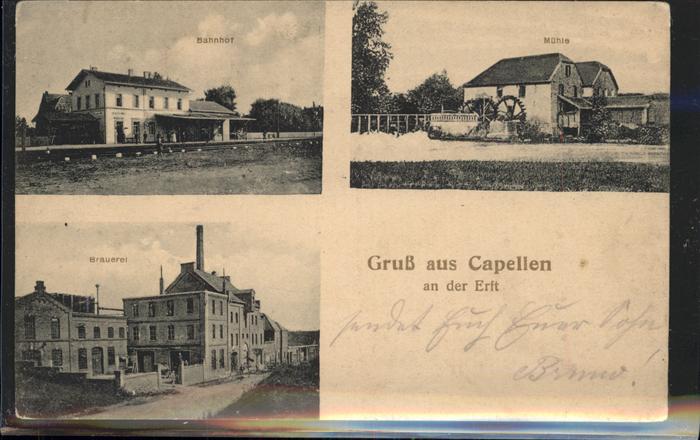 Bahnhof
Mühle
Brauerei
Gruß aus Capellen
an der Erft
sendet Euch Euer Sohn
Bruno!